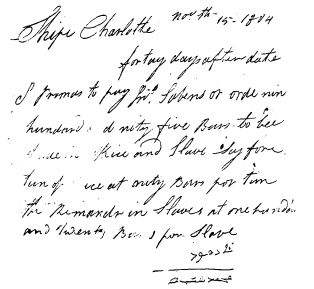 Ships Charlotte Novth 15-1804
fortay days after date
I Promas to pay Jno. Sabens or orde nin
hundrid d nity five Bars to bee
Rice and Slave Say fore
tun of ice at nuty Bars por tun
the Remandr in Slaves at one hundrd
and twenty Bars por Slave